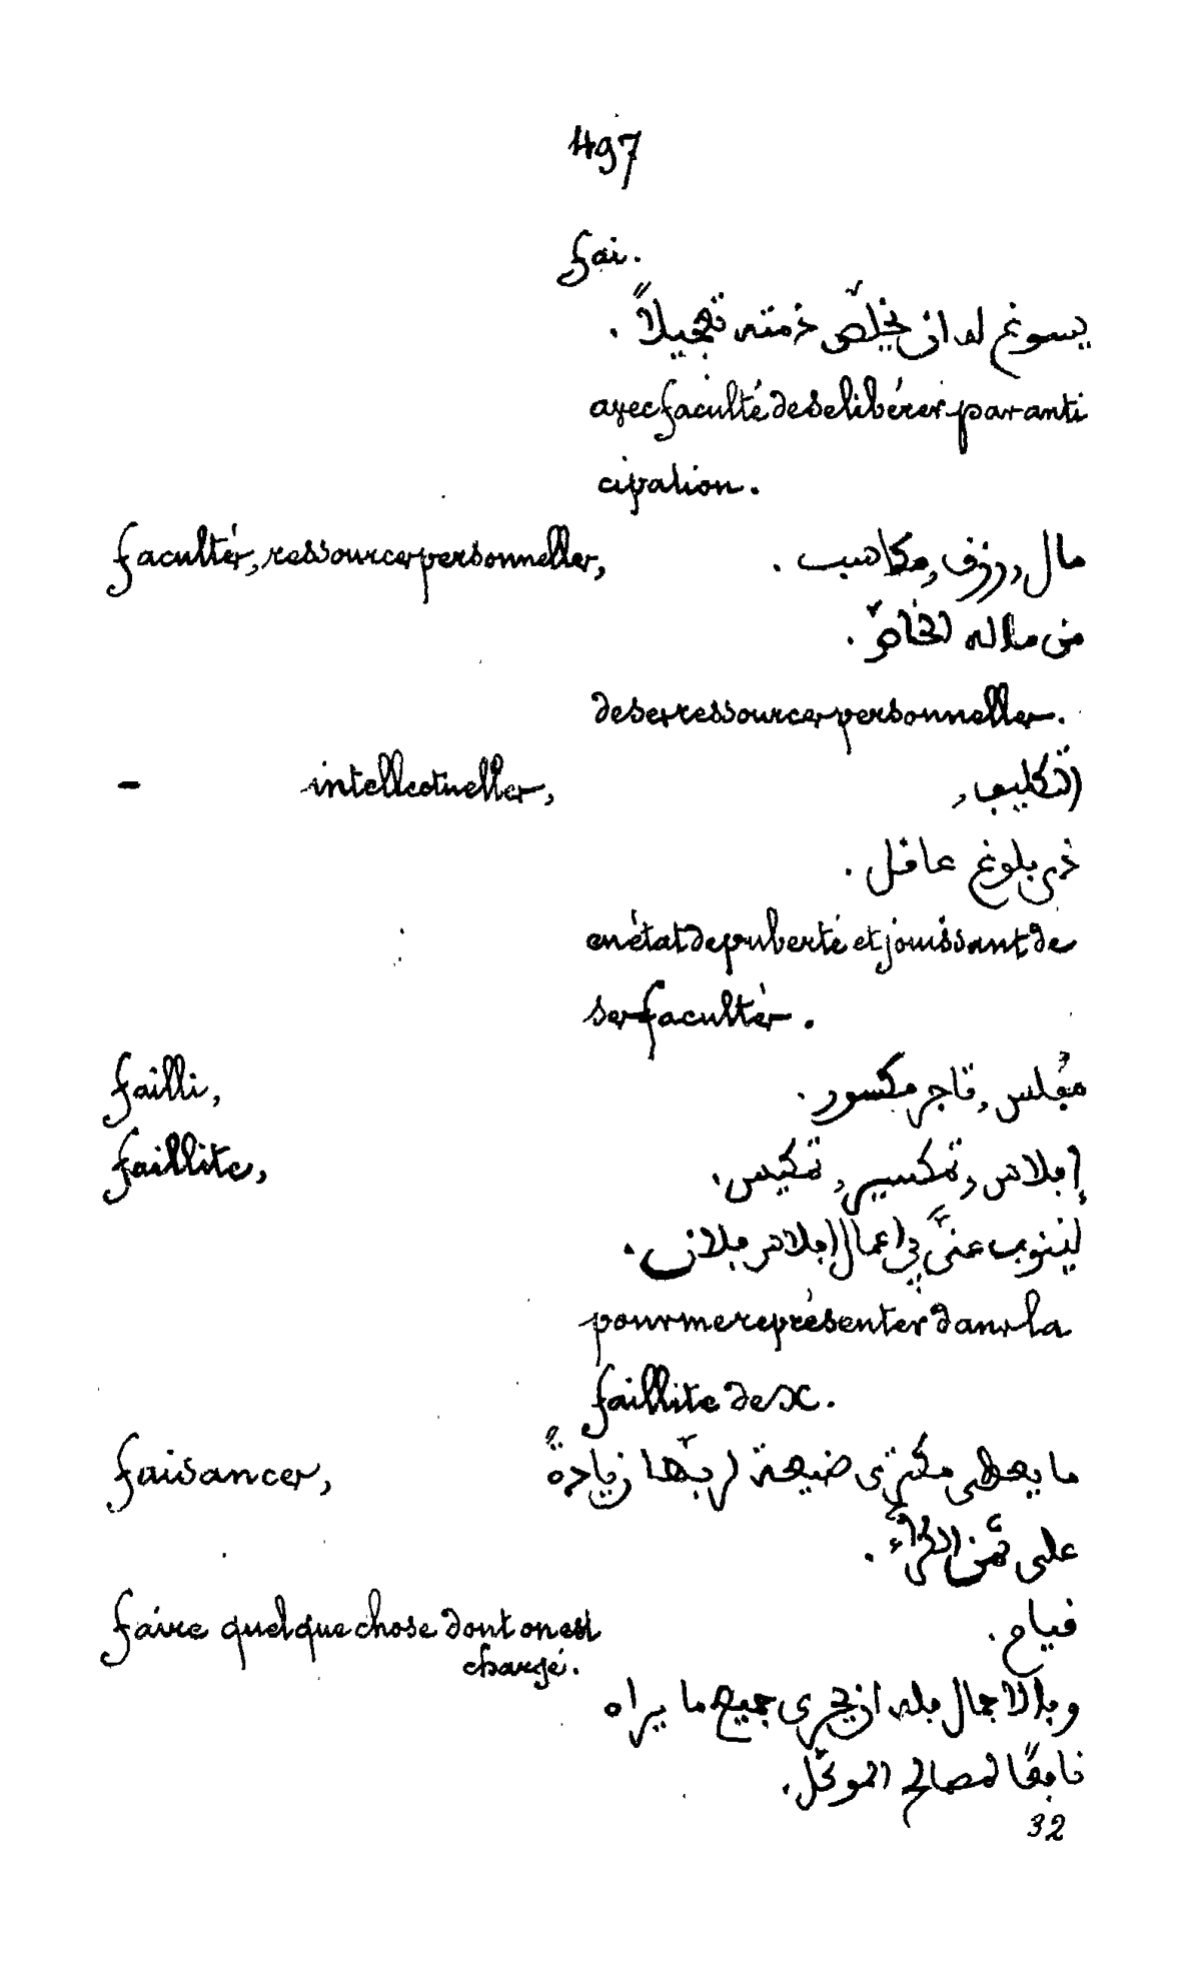 497
fai.
يسوغ له ان يخلّص ذمته تعجيلاً.
avec faculté de se libérer par anti
cipation.
facultés, ressources personnelles, مال, رزق, مكاسب.
من ماله الخاصّ.
de ses ressources personnelles.
- intellectuelles, التكليف,
ذي بلوغ عاقل.
en état de puberté et jouissant de
ses facultés.
failli, مُفلس, تاجر مكسور.
faillite, إفلاس, تكسير, تفليس.
لينوب عنّي في اعمال إفلاس فلان.
pour me représenter dans la
faillite de X.
faisances, ما يعطى مكترى ضيعة لربّها زيادةً
على ثمن الكراء.
faire quelque chose dont on est قيام.
chargé.
وبالاجمال فله ان يجرى جميع ما يراه
نافعًا لمصالح الموكّل.
32